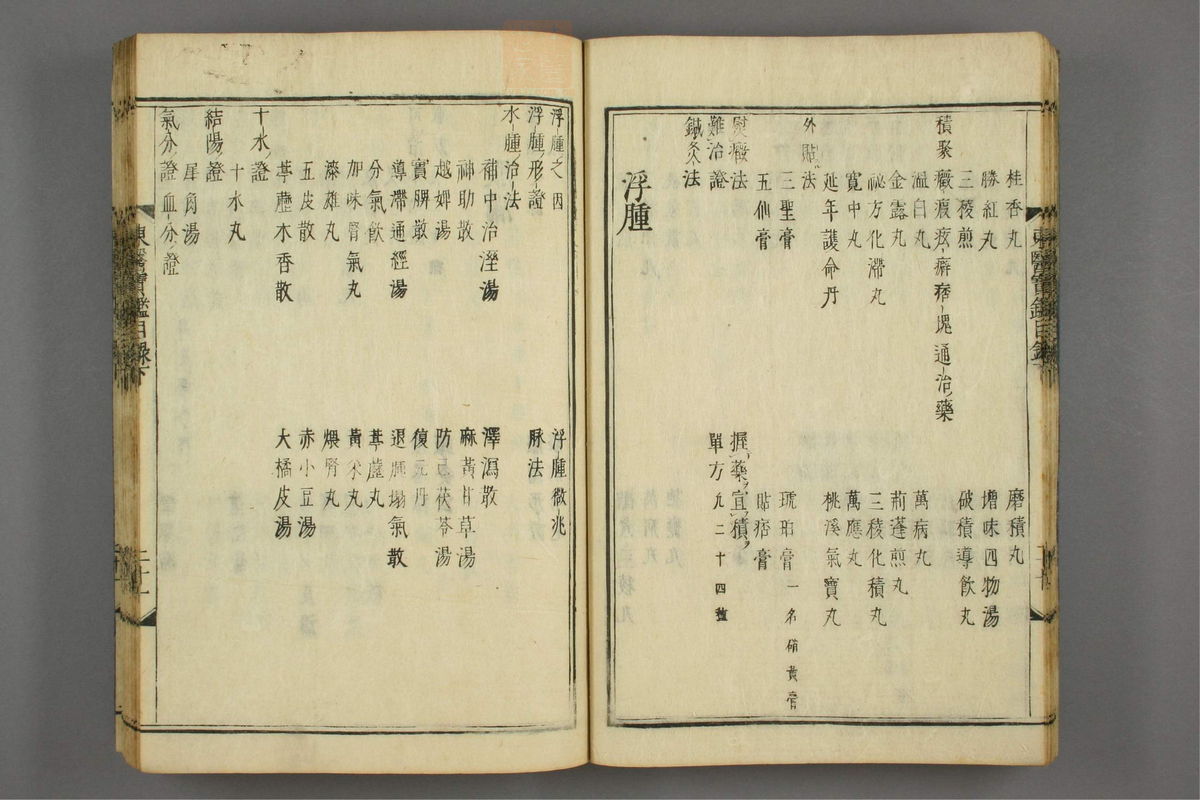 桂香丸　磨積丸
勝紅丸　增味四物湯
三稜煎　破積導飲丸
積聚癥瘕痃癖痞塊通治藥
溫白丸　萬病丸
金露丸　莉蓬煎丸
祕方化滯丸　三稜化積丸
寬中丸　萬應丸
延年護命丹　桃溪氣寶丸
外貼法
三聖膏　琥珀膏一名硝黃膏
五仙膏　貼痞膏
熨癥法　握藥宜積
難治證　單方凡二十四種
鍼灸法
浮腫
浮腫之因　浮腫微兆
浮腫形證　脉法
水腫治法
補中治溼湯　澤瀉散
神助散　麻黃甘草湯
越婢湯　防己茯苓湯
實脾散　復元丹
導滯通經湯　退腫塌氣散
分氣飲　葶藶丸
加味腎氣丸　黃米丸
漆雄丸　煨腎丸
五皮散　赤小豆湯
葶藶木香散　大橘皮湯
十水證
十水丸
結陽證
犀角湯
氣分證　血分證
東醫寶鑑目錄下
東醫寶鑑目錄下　二十一